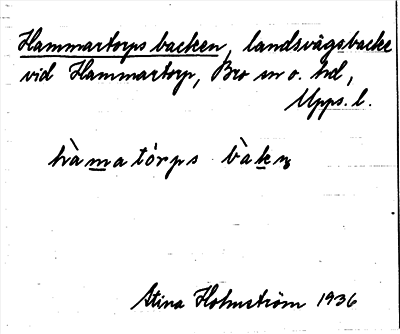 Hammartorps backen, landsvägsbacke
vid Hammartorp, Bro sn o. hd,
Upps. l.
hàmatórps bàkn̥
Stina Holmström 1936